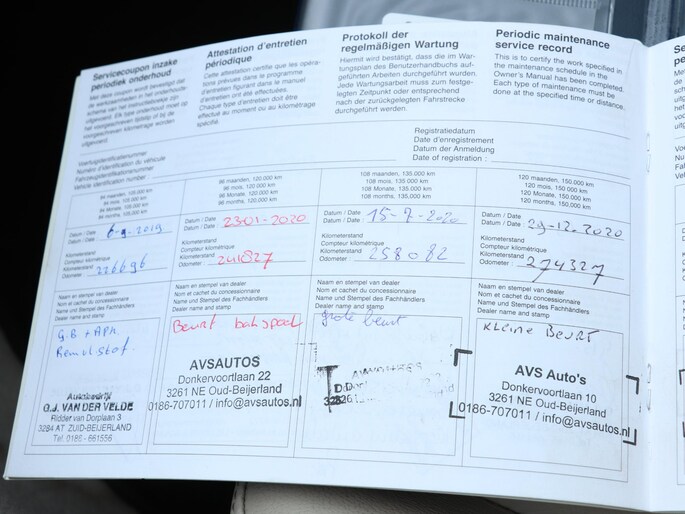 Servicecoupon inzake
periodiek onderhoud
Met deze coupon wordt bevestigd dat
de werkzaamheden in het onderhouds-
schema van het instructieboekje zijn
uitgevoerd. Elk type onderhoud moet op
het voorgeschreven tijdstip of bij de
voorgeschreven kilometrage worden
uitgevoerd.
Attestation d'entretien
périodique
Cette attestation certifie que les opéra-
tions prévues dans le programme
d'entretien figurant dans le manuel
d'entretien ont été effectuées.
Chaque type d'entretien doit être
effectué au moment ou au kilométrage
spécifié.
Protokoll der
regelmäßigen Wartung
Hiermit wird bestätigt, dass die im War-
tungsplan des Benutzerhandbuchs auf-
geführten Arbeiten durchgeführt wurden.
Jede Wartungsarbeit muss zum festge-
legten Zeitpunkt oder entsprechend
nach der zurückgelegten Fahrstrecke
durchgeführt werden.
Periodic maintenance
service record
This is to certify the work specified in
the maintenance schedule in the
Owner's Manual has been completed.
Each type of maintenance must be
done at the specified time or distance.
Voertuigidentificatienummer
Numéro d'identification du véhicule
Fahrzeugidentifikationsnummer
Vehicle identification number :
Registratiedatum
Date d'enregistrement
Datum der Anmeldung
Date of registration :
84 maanden, 105.000 km
84 mois, 105.000 km
84 Monate, 105.000 km
84 months, 105,000 km
Datum / Date
Datum / Date : 6-9-2019
Kilometerstand
Compteur kilométrique
Kilometerstand
Odometer : 226696
Naam en stempel van dealer
Nom et cachet du concessionnaire
Name und Stempel des Fachhändlers
Dealer name and stamp
G.B + APK
Autobedrijf
G.J. VAN DER VELDE
Ridder van Dorplaan 3
3284 AT ZUID-BEIJERLAND
Tel. 0186 - 661556
96 maanden, 120.000 km
96 mois, 120.000 km
96 Monate, 120.000 km
96 months, 120,000 km
Datum / Date
Datum / Date : 23-01-2020
Kilometerstand
Compteur kilométrique
Kilometerstand
Odometer : 241827
Naam en stempel van dealer
Nom et cachet du concessionnaire
Name und Stempel des Fachhändlers
Dealer name and stamp
Beurt
AVSAUTOS
Donkervoortlaan 22
3261 NE Oud-Beijerland
0186-707011 / info@avsautos.nl
108 maanden, 135.000 km
108 mois, 135.000 km
108 Monate, 135.000 km
108 months, 135,000 km
Datum / Date
Datum / Date : 15-7-2020
Kilometerstand
Compteur kilométrique
Kilometerstand
Odometer : 258082
Naam en stempel van dealer
Nom et cachet du concessionnaire
Name und Stempel des Fachhändlers
Dealer name and stamp
grote beurt
120 maanden, 150.000 km
120 mois, 150.000 km
120 Monate, 150.000 km
120 months, 150,000 km
Datum / Date
Datum / Date : 29-12-2020
Kilometerstand
Compteur kilométrique
Kilometerstand
Odometer : 274327
Naam en stempel van dealer
Nom et cachet du concessionnaire
Name und Stempel des Fachhändlers
Dealer name and stamp
Kleine Beurt
AVS Auto's
Donkervoortlaan 10
3261 NE Oud-Beijerland
0186-707011 / info@avsautos.nl